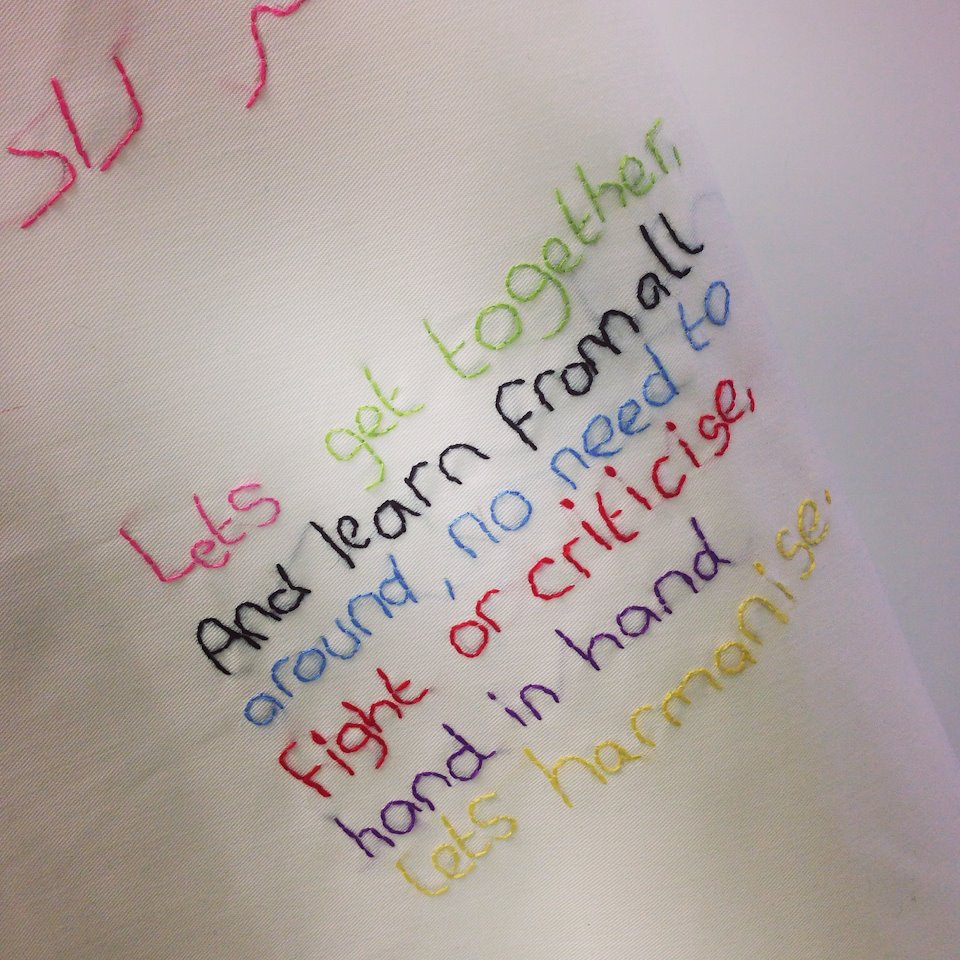 Lets get together,
And learn from all
around, no need to
Fight or criticise,
hand in hand
Lets harmanise.